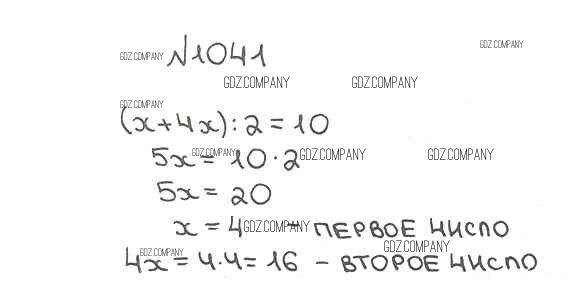 GDZ.COMPANY №1041 GDZ.COMPANY
GDZ.COMPANY GDZ.COMPANY
GDZ.COMPANY
(x+4x):2=10
5x=10·2 GDZ.COMPANY GDZ.COMPANY GDZ.COMPANY
5x=20
x=4 GDZ.COMPANY – ПЕРВОЕ ЧИСЛО
GDZ.COMPANY GDZ.COMPANY
4x=4.4=16 – ВТОРОЕ ЧИСЛО